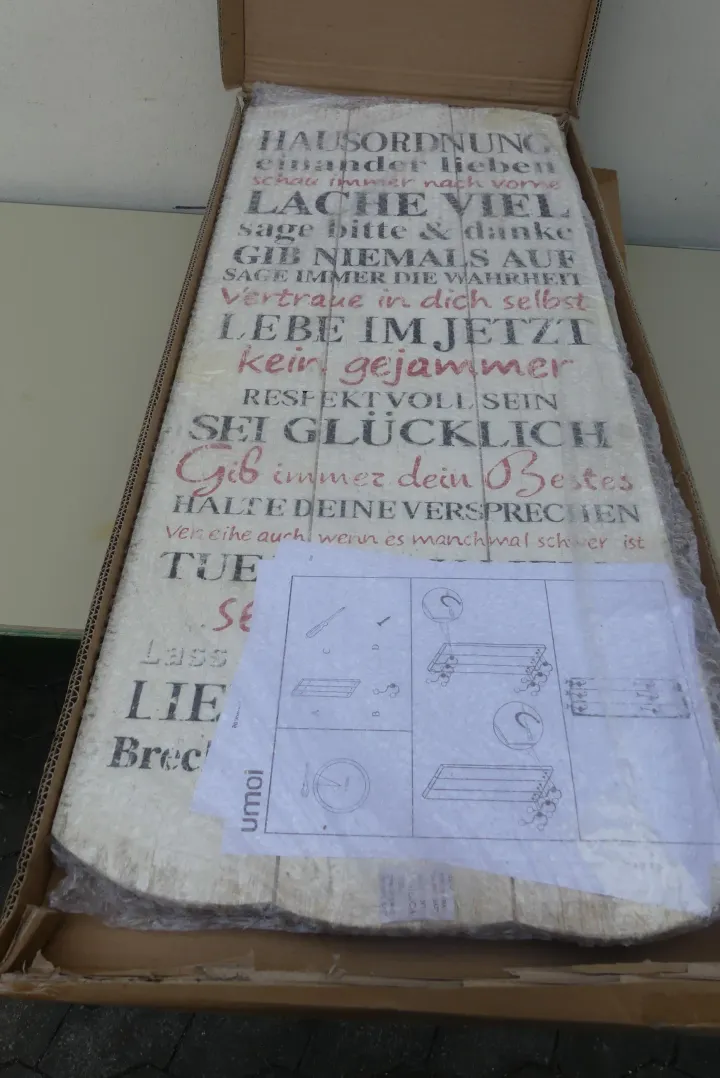 HAUSORDNUNG
einander lieben
schau immer nach vorne
LACHE VIEL
sage bitte & danke
GIB NIEMALS AUF
SAGE IMMER DIE WAHRHEIT
Vertraue in dich selbst
LEBE IM JETZT
kein gejammer
RESPEKTVOLL SEIN
SEI GLÜCKLICH
Gib immer dein Bestes
HALTE DEINE VERSPRECHEN
Verzeihe auch wenn es manchmal schwer ist
TUE
SE
Lass
LIE
Brec
C
D
A
B
umoi